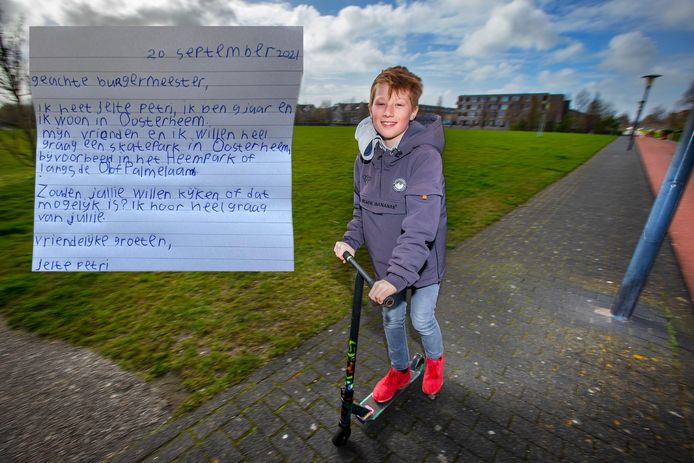 20 september 2021
geachte burgermeester,
ik heet jelte petri, ik ben 9 jaar en
ik woon in Oosterheem.
mijn vrienden en ik willen heel
graag een skatepark in Oosterheem,
byvoorbeeld in het Heempark of
langs de Oöf Palmelaan.
Zouden jullie willen kijken of dat
mogelyk is? ik hoor heel graag
van jullie.
vriendelyke groeten,
jelte petri